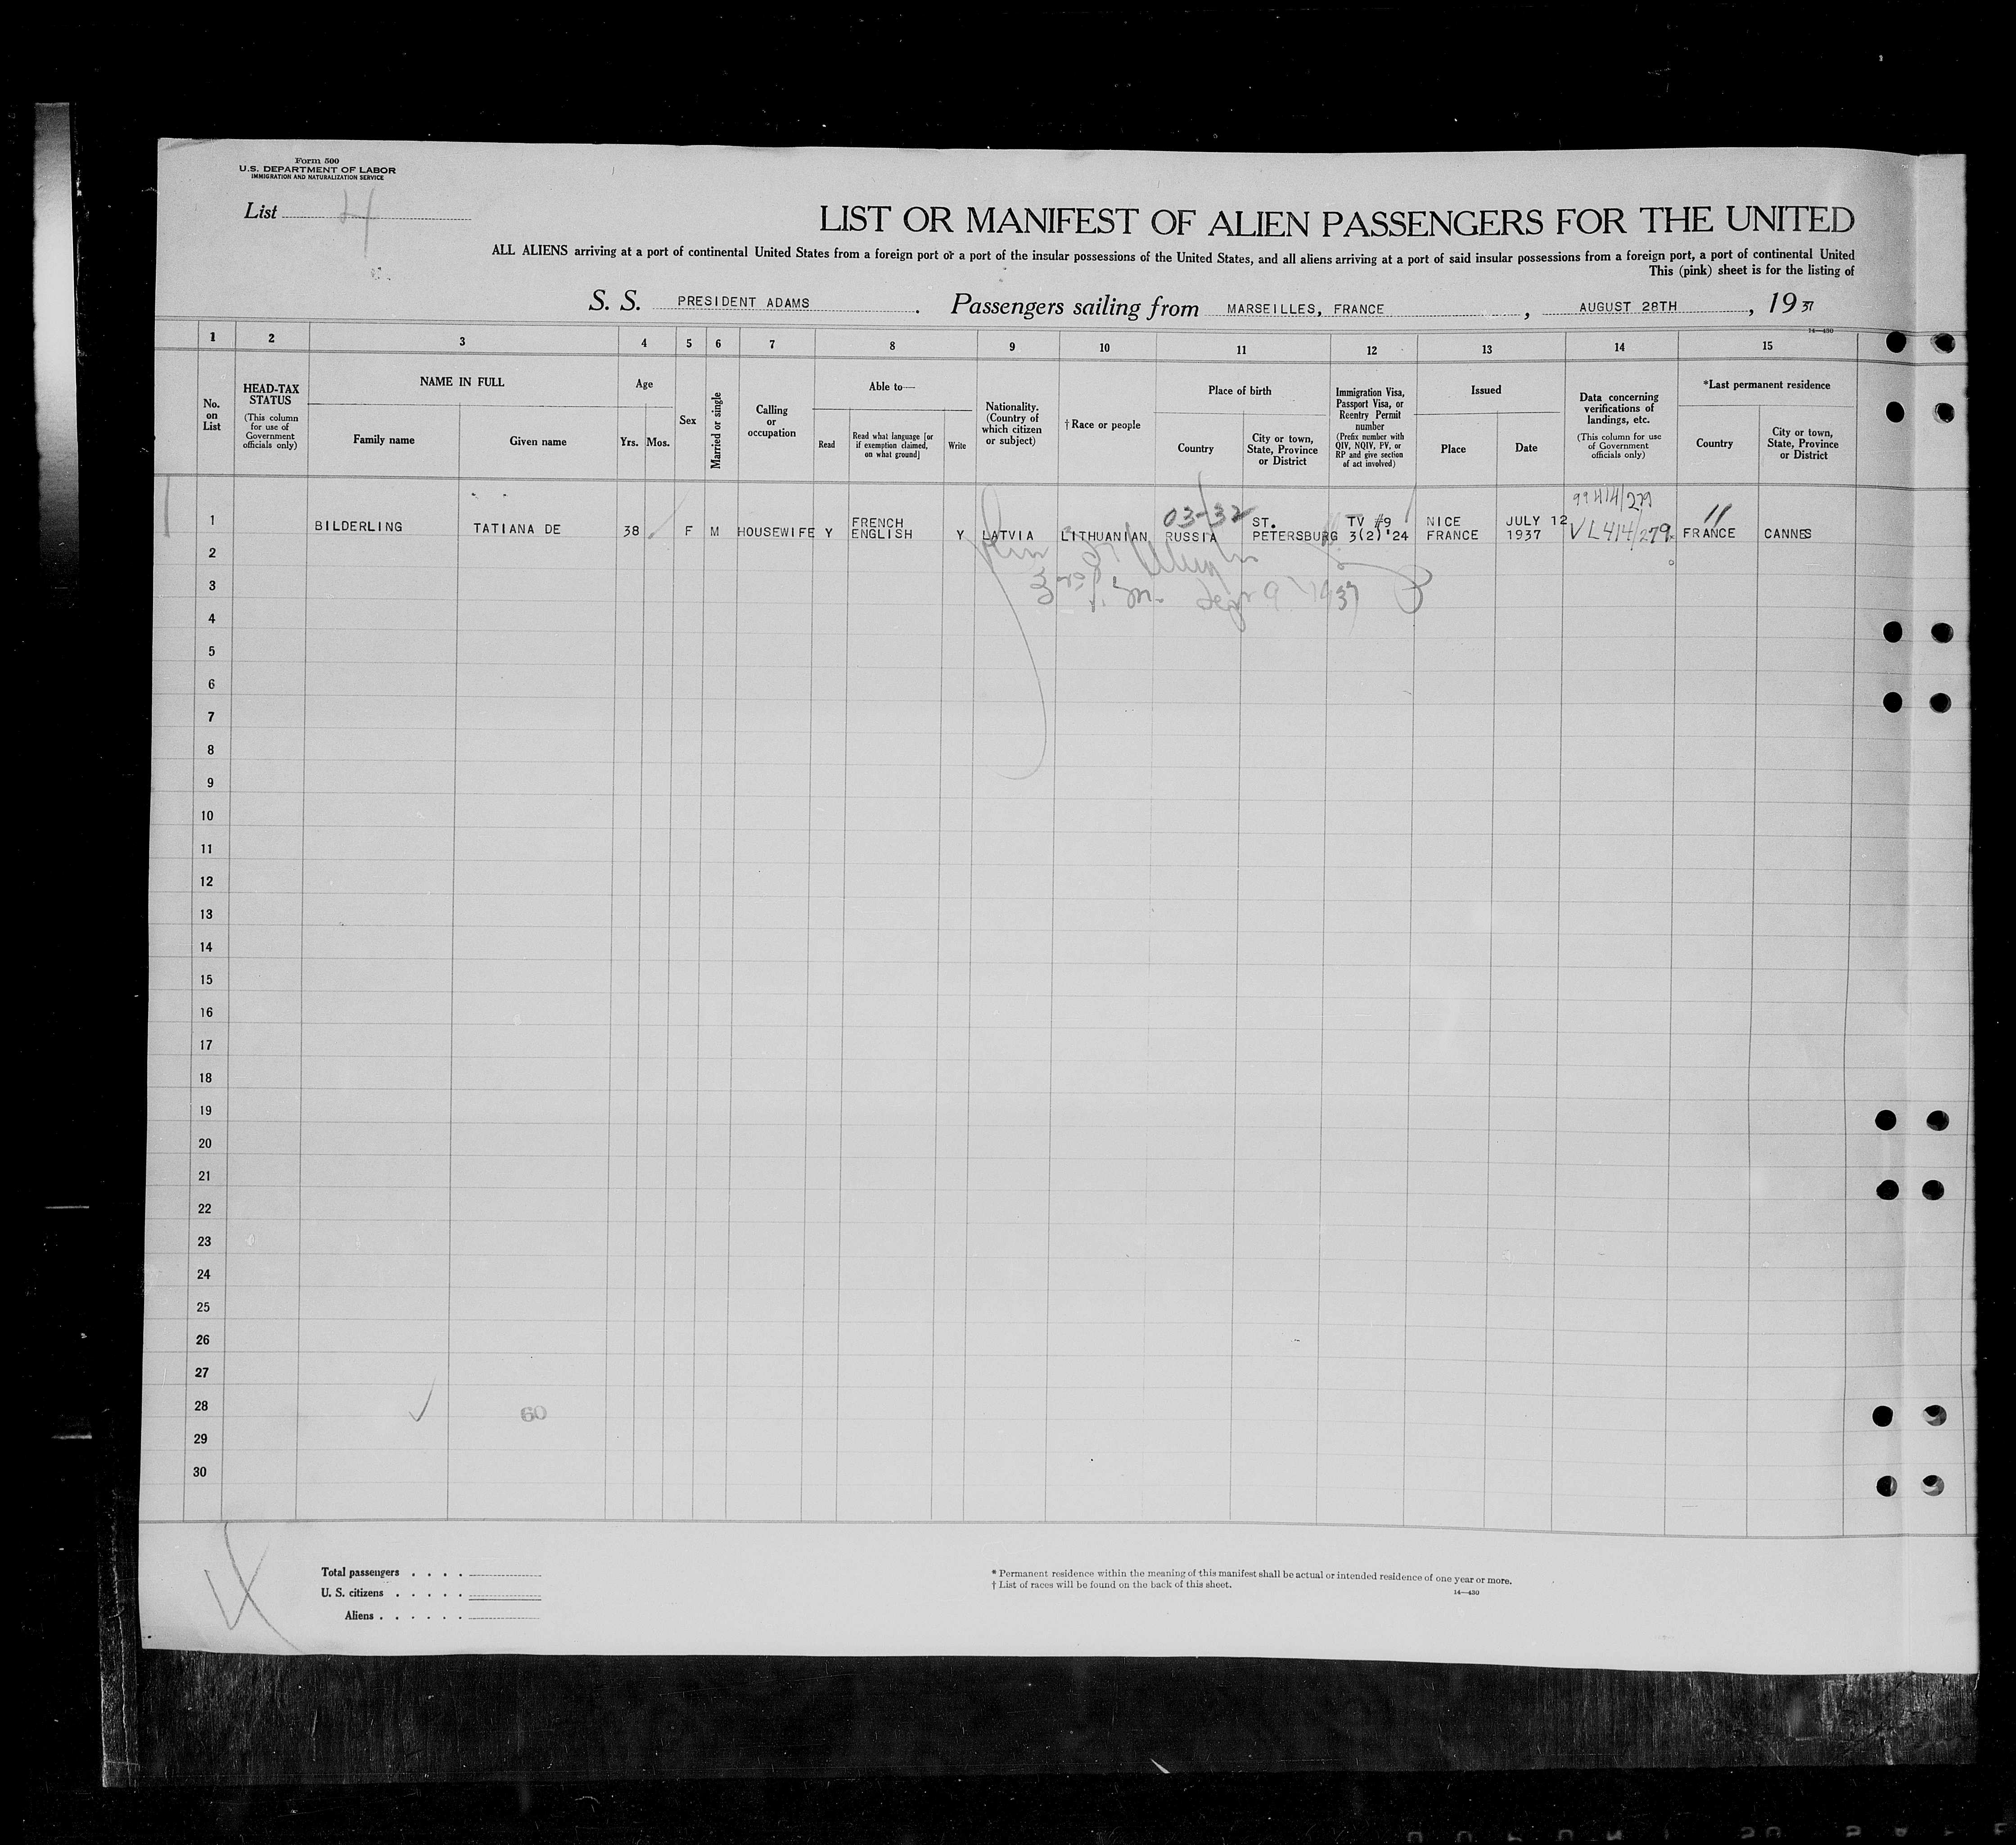 Form 500
U.S. DEPARTMENT OF LABOR
IMMIGRATION AND NATURALIZATION SERVICE
List 4
LIST OR MANIFEST OF ALIEN PASSENGERS FOR THE UNITED
ALL ALIENS arriving at a port of continental United States from a foreign port or a port of the insular possessions of the United States, and all aliens arriving at a port of said insular possessions from a foreign port, a port of continental United
This (pink) sheet is for the listing of
S. S. PRESIDENT ADAMS. Passengers sailing from MARSEILLES, FRANCE, AUGUST 28TH, 1937
14—430
1 2 3 4 5 6 7 8 9 10 11 12 13 14 15
No. on List
HEAD-TAX STATUS
(This column for use of Government officials only)
NAME IN FULL
Family name
Given name
Age
Yrs. Mos.
Sex
Married or single
Calling or occupation
Able to—
Read
Read what language [or if exemption claimed, on what ground]
Write
Nationality. (Country of which citizen or subject)
†Race or people
Place of birth
Country
City or town, State, Province or District
Immigration Visa, Passport Visa, or Reentry Permit number
(Prefix number with QIV, NQIV, PV, or RP and give section of act involved)
Issued
Place
Date
Data concerning verifications of landings, etc.
(This column for use of Government officials only)
*Last permanent residence
Country
City or town, State, Province or District
99414/279
03-32
11
1 BILDERLING TATIANA DE 38 F M HOUSEWIFE Y FRENCH ENGLISH Y LATVIA LITHUANIAN RUSSIA ST. PETERSBURG TV #9 3(2)'24 NICE FRANCE JULY 12 1937 VL414/279 FRANCE CANNES
2
3 Sept 9 1937
4
5
6
7
8
9
10
11
12
13
14
15
16
17
18
19
20
21
22
23
24
25
26
27
28 60
29
30
Total passengers . . . .
U. S. citizens . . . . .
Aliens . . . . . .
* Permanent residence within the meaning of this manifest shall be actual or intended residence of one year or more.
† List of races will be found on the back of this sheet.
14—430